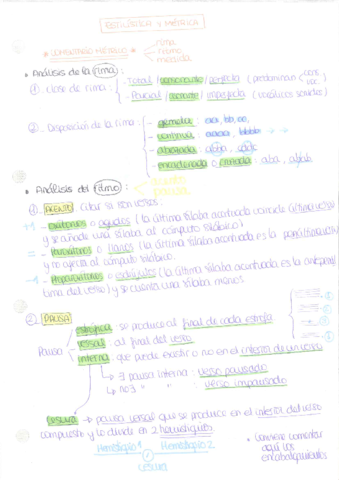 ESTILÍSTICA Y MÉTRICA
* COMENTARIO MÉTRICO *
rima
ritmo
medida
• Análisis de la rima:
①. Clase de rima:
- Total / consonante / perfecta (predominan
- Parcial / asonante / imperfecta (vocálicos
②. Disposición de la rima:
- gemela: aa, bb, cc,
- continua: aaaaa, bbbbb
- abrazada: abba, cddc
- encadenada o cruzada: aba, abab
• Análisis del ritmo:
①. ACENTO
+1 - oxítonos o agudos (la última sílaba acentuada coincide
y se añade una sílaba al cómputo silábico)
= - paroxítonos o llanos (la última sílaba acentuada es la penúltima
y no afecta al cómputo silábico.
-1 - proparoxítonos o esdrújulos (la última sílaba acentuada es la antepenúl
tima del verso) y se cuenta una sílaba menos
②. PAUSA
Pausa
estrófica: se produce al final de cada estrofa
versal: al final del verso
interna: que puede existir o no en el interior de un verso
∃ pausa interna: verso pausado
no ∃ " " verso impausado
cesura → pausa versal que se produce en el interior del verso
compuesto y lo divide en 2 hemistiquios.
Hemistiquio 1 Hemistiquio 2
cesura
• Conviene comentar
aquí los
encabalgamientos